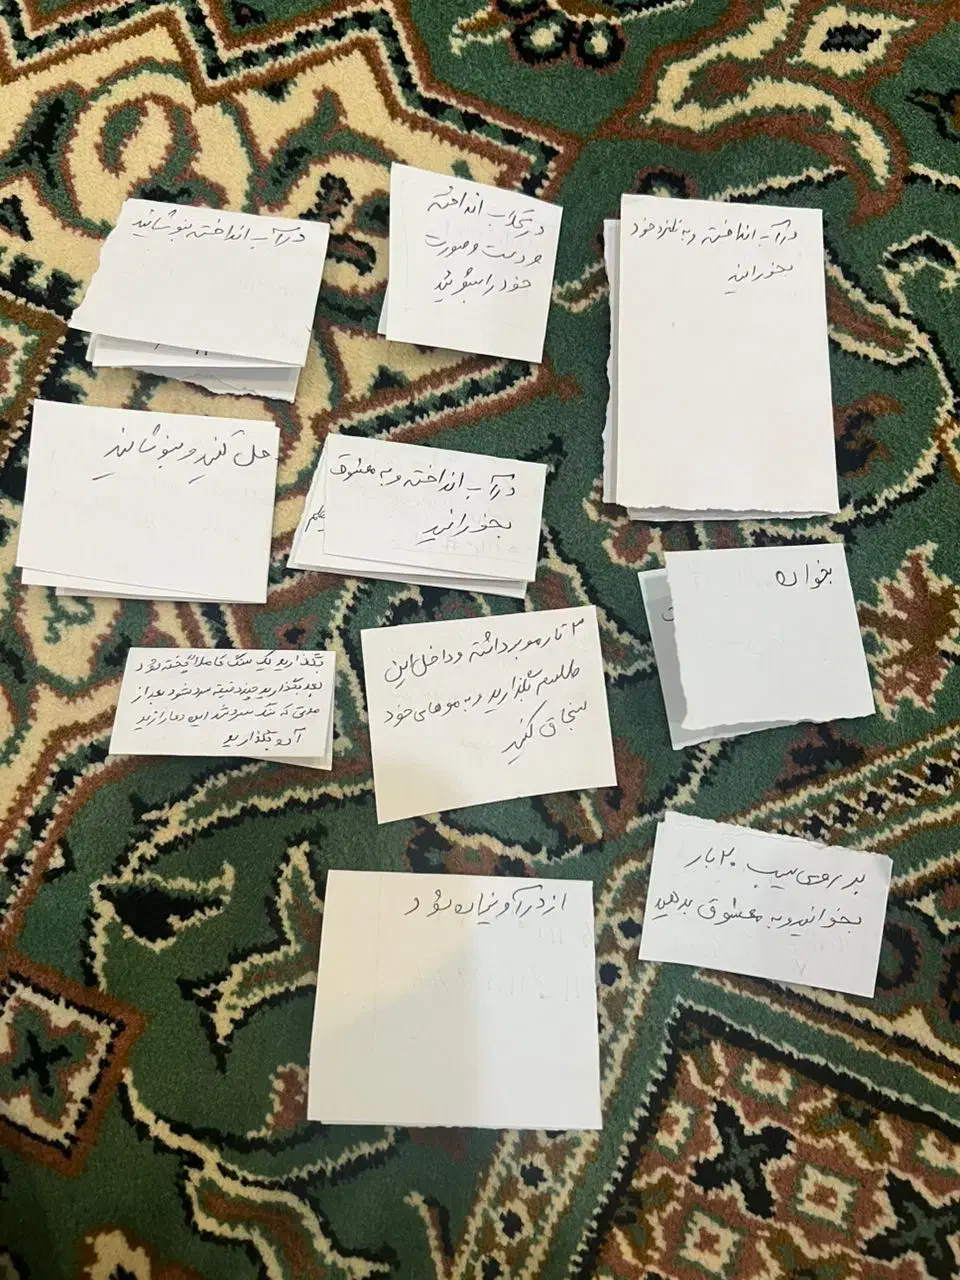 در آب انداخته بنوشانید
در گلاب انداخته
و دست و صورت
خود را بشوئید
در آب انداخته و به نامزد خود
بخورانید
حل کنید و بنوشانید
در آب انداخته و به معشوق
بخورانید
بخواند
۳ تار مو برداشته و داخل این
طلسم بگذارید و به موهای خود
سنجاق کنید
بگذارید یک سنگ کاملا پخته شود
بعد بگذارید چند دقیقه سرد شود بعد از
مدتی که سنگ سرد شد این دعا را زیر
آن بگذارید
بر روی سیب ۲۰ بار
بخوانید و به معشوق بدهید
از در آویزان شود